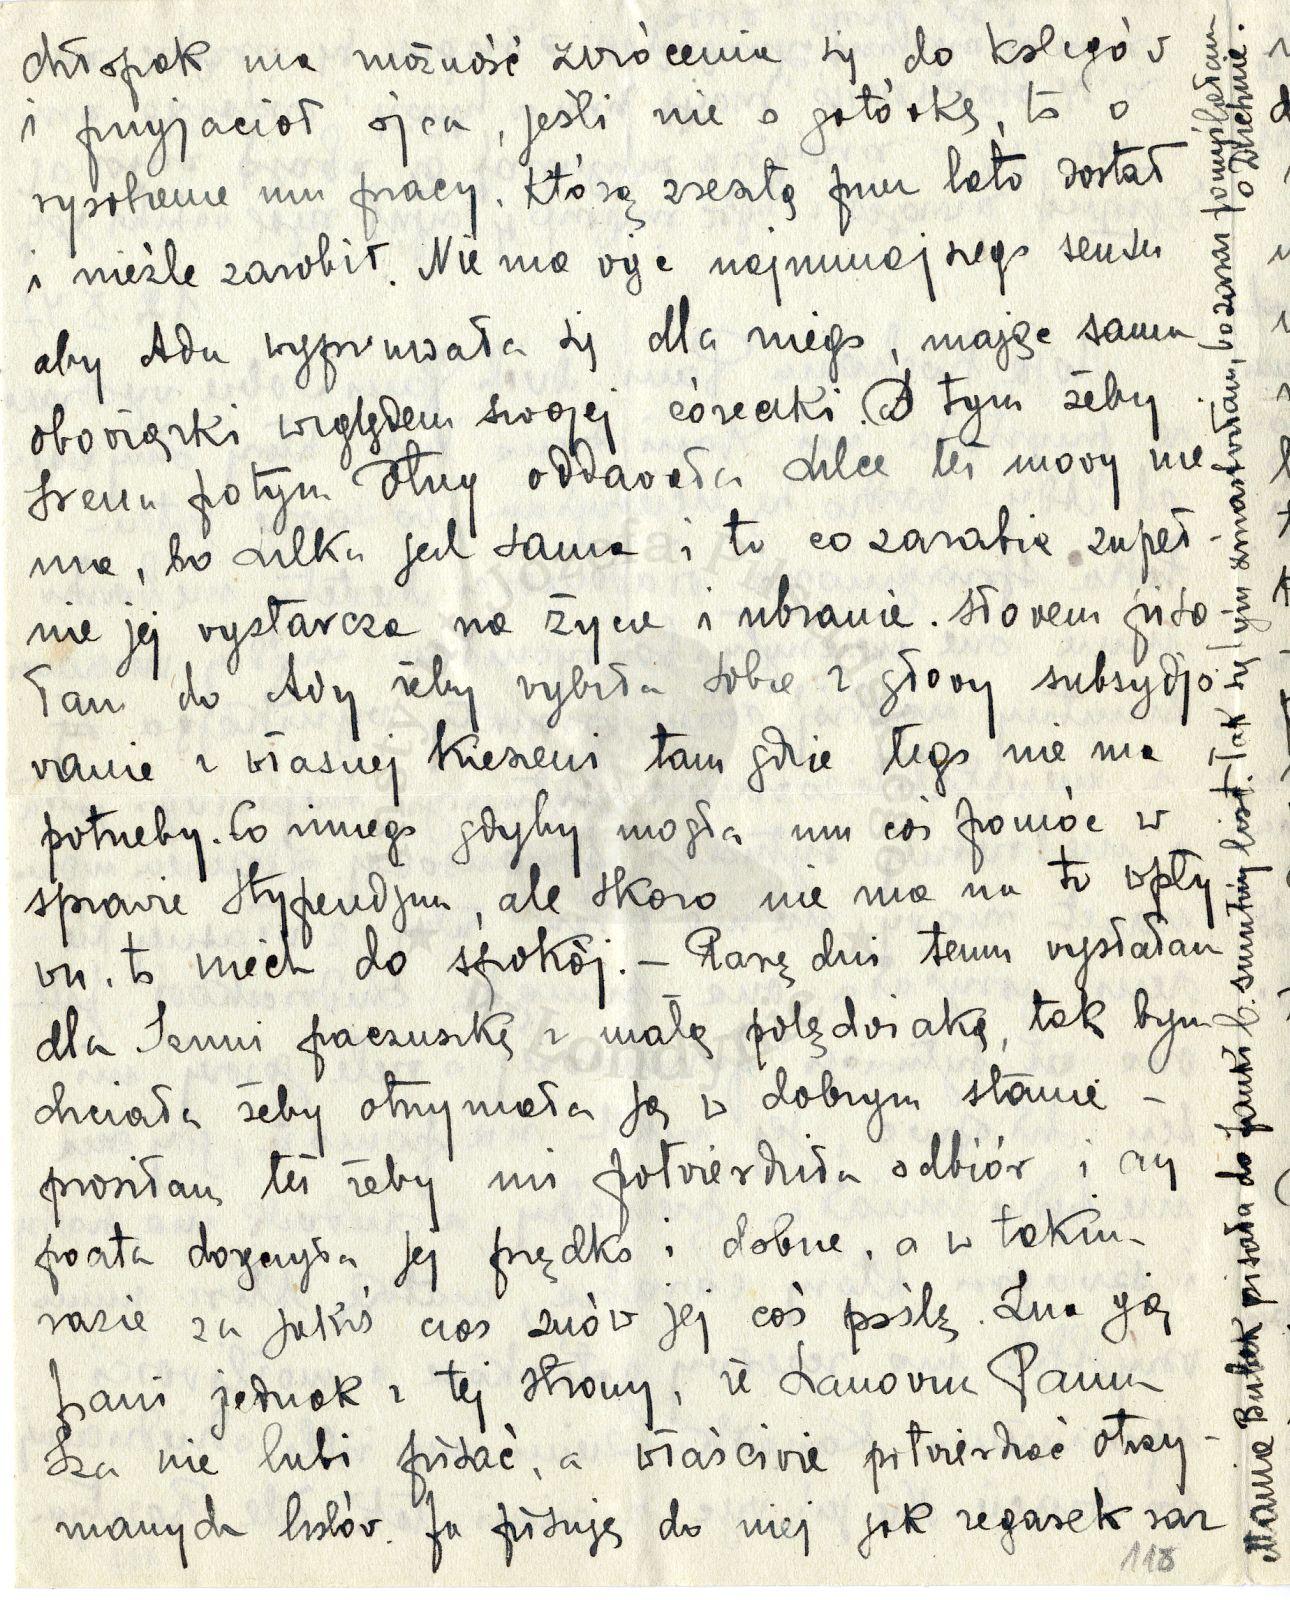 chłopak ma możność zwrócenia się do kolegów
i przyjaciół ojca, jeśli nie o gotówkę, to o
wyrobienie mu pracy, którą zresztą przez lato dostał
i nieźle zarobił. Nie ma więc najmniejszego sensu
aby Ada wypruwała się dla niego, mając sama
obowiązki względem swojej córeczki. O tym żeby
Irena potym długi oddawała Lilce też mowy nie
ma, bo Lilka jest sama i to co zarabia zupeł-
nie jej wystarcza na życie i ubranie. Słowem pisa-
łam do Ady żeby wybiła sobie z głowy subsydjo-
wanie z własnej kieszeni tam gdzie tego nie ma
potrzeby. Co innego gdyby mogła mu coś pomóc w
sprawie stypendjum, ale skoro nie ma na to wpły
wu, to niech da spokój. – Parę dni temu wysłałam
dla Seni paczuszkę z małą polędwiaką, tak bym
chciała żeby otrzymała ją w dobrym stanie –
prosiłam też żeby mi potwierdziła odbiór i czy
poczta doręczyła jej prędko i dobrze, a w takim
razie za jakiś czas znów jej coś poślę. Zna ją
pani jednak z tej strony, że Szanowna Panna
Iza nie lubi pisać, a właściwie potwierdzać otrzy-
manych listów. Ja pisuję do niej jak zegarek raz
118
Mania Butek pisała do Janki b. smutny list. Tak się tym zmartwiłam, bo zaraz pomyślałam
o Zdzichnie.